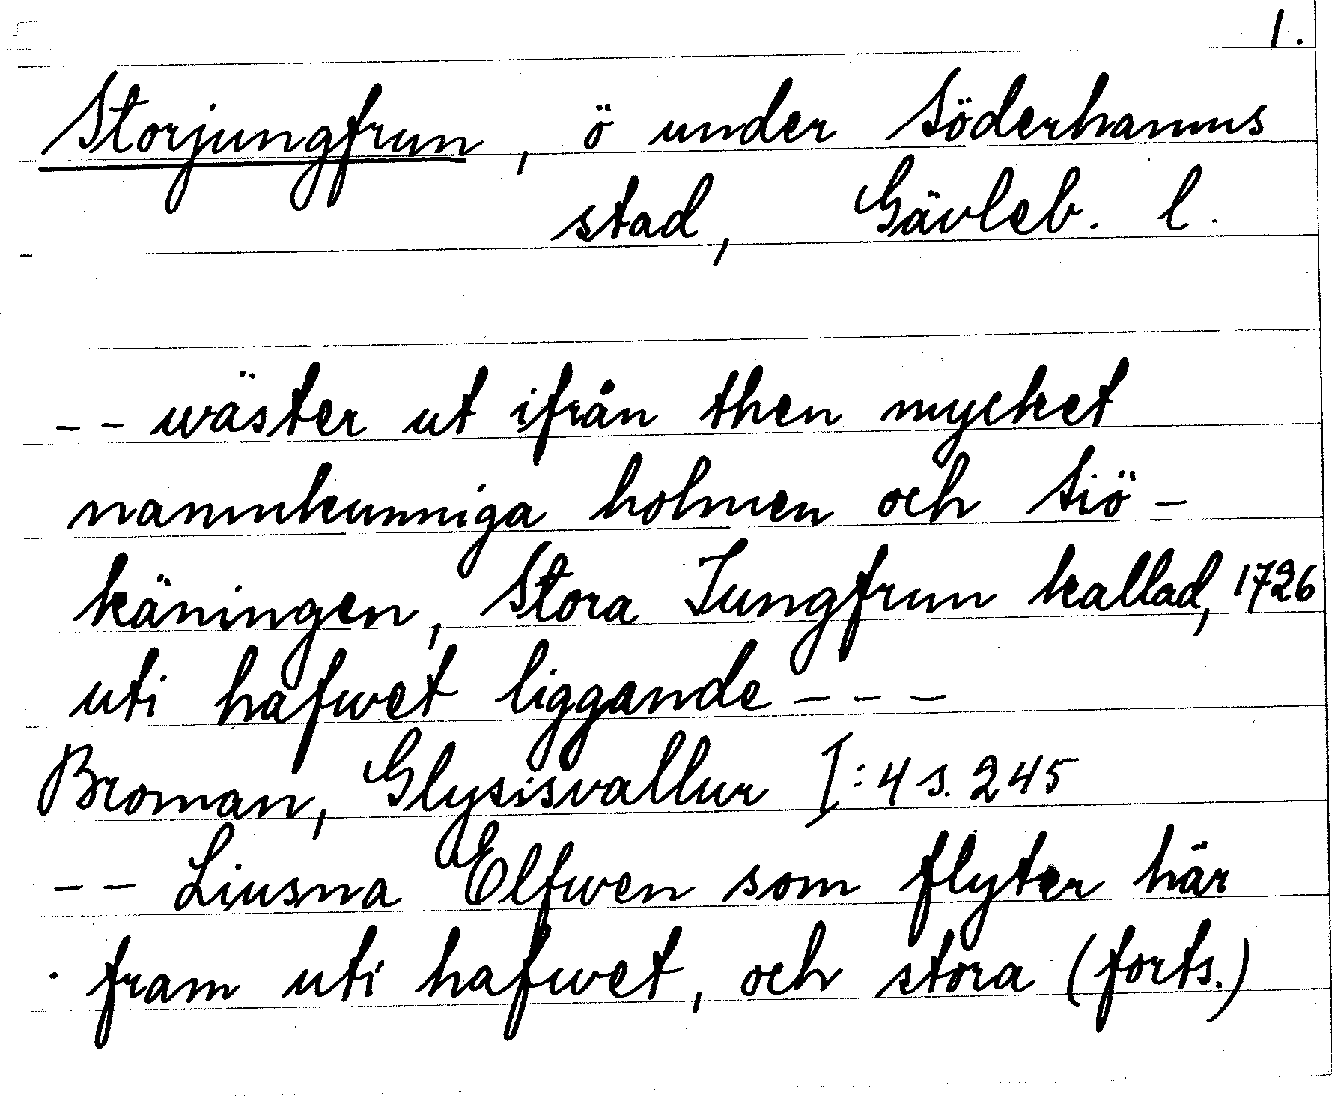 1.
Storjungfrun, ö under Söderhamns
stad, Gävleb. l.
-- wäster ut ifrån then mycket
namnkunniga holmen och Siö-
käningen, Stora Jungfrun kallad, 1726
uti hafwet liggande ---
Broman, Glysisvallur I:4 s. 245
-- Liusna Elfwen som flyter här
fram uti hafwet, och stora (forts.)